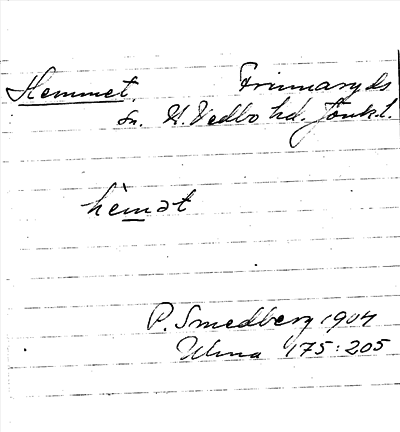 Hemmet. Frinnaryds
sn. N. Vedbo hd. Jönk.l.
hèmət
P. Smedberg 1904
Ulma 175:205